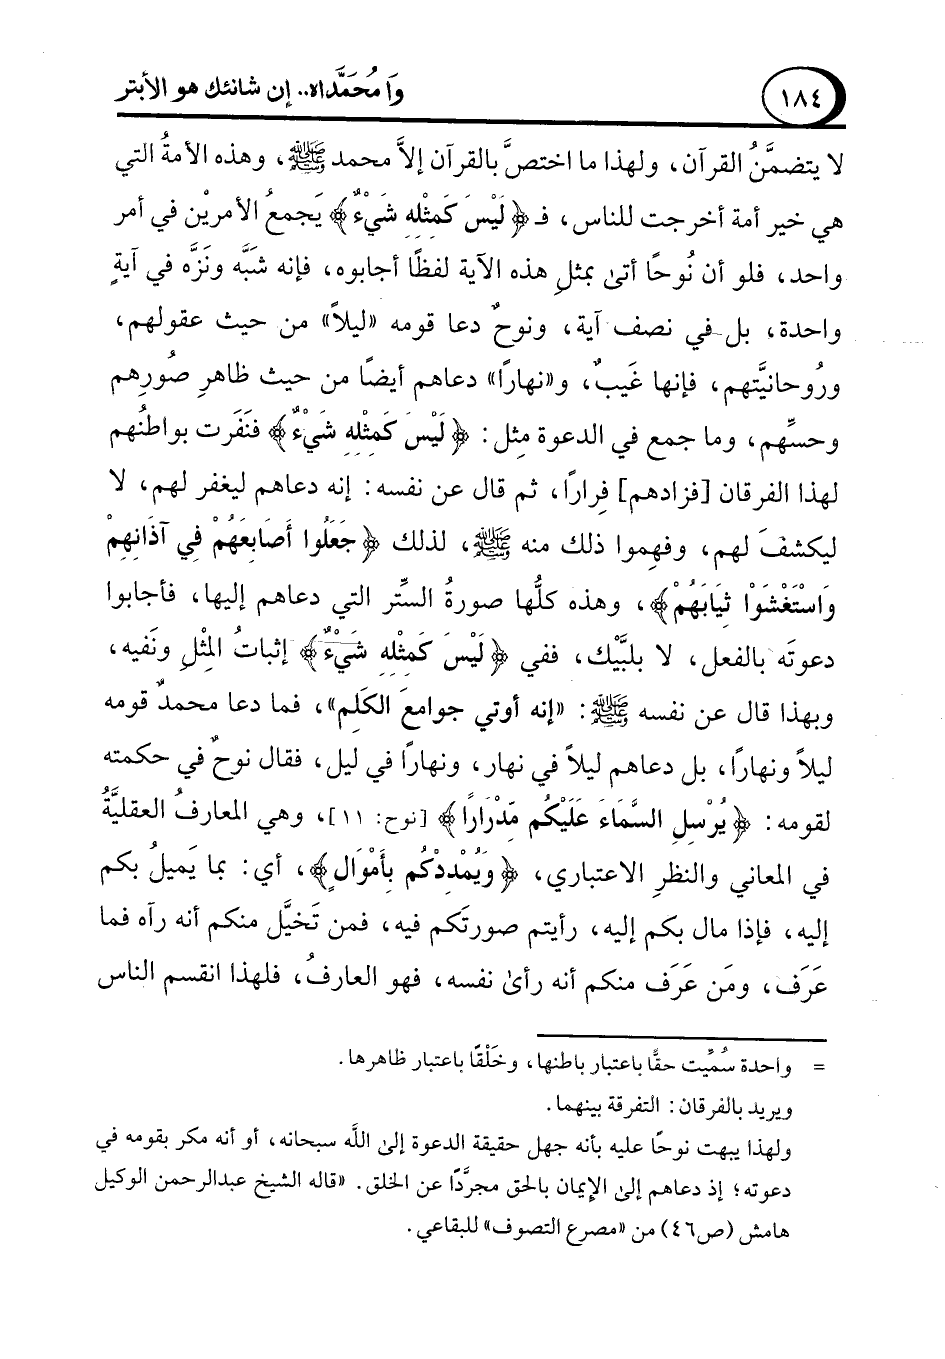 ١٨٤
وَا مُحَمَّدَاه.. إن شانئك هو الأبتر
لا يتضمَّنُ القرآن، ولهذا ما اختصَّ بالقرآن إلاَّ محمد ﷺ، وهذه الأمةُ التي
هي خير أمة أخرجت للناس، فـ ﴿لَيْسَ كَمِثْلِهِ شَيْءٌ﴾ يَجمعُ الأمريْن في أمر
واحد، فلو أن نُوحًا أتىٰ بمثلِ هذه الآية لفظًا أجابوه، فإنه شبَّه ونَزَّه في آيةٍ
واحدة، بل في نصف آية، ونوحٌ دعا قومه «ليلاً» من حيث عقولهم،
ورُوحانيَّتهم، فإنها غَيبٌ، و«نهارًا» دعاهم أيضًا من حيث ظاهرِ صُورِهم
وحسِّهم، وما جمع في الدعوة مثل: ﴿لَيْسَ كَمِثْلِهِ شَيْءٌ﴾ فنَفَرت بواطنُهم
لهذا الفرقان [فزادهم] فِرارًا، ثم قال عن نفسه: إنه دعاهم ليغفر لهم، لا
ليكشفَ لهم، وفهِموا ذلك منه ﷺ، لذلك ﴿جَعَلُوا أَصَابِعَهُمْ فِي آذَانِهِمْ
وَاسْتَغْشَوْا ثِيَابَهُمْ﴾، وهذه كلُّها صورةُ السترِّ التي دعاهم إليها، فأجابوا
دعوتَه بالفعل، لا بلبَّيك، ففي ﴿لَيْسَ كَمِثْلِهِ شَيْءٌ﴾ إثباتُ المِثْلِ ونَفيه،
وبهذا قال عن نفسه ﷺ: «إنه أوتي جوامعَ الكَلِم»، فما دعا محمدٌ قومه
ليلاً ونهارًا، بل دعاهم ليلاً في نهار، ونهارًا في ليل، فقال نوحٌ في حكمته
لقومه: ﴿يُرْسِلِ السَّمَاءَ عَلَيْكُم مِّدْرَارًا﴾ [نوح: ١١]، وهي المعارفُ العقليَّةُ
في المعاني والنظرِ الاعتباري، ﴿وَيُمْدِدْكُم بِأَمْوَالٍ﴾، أي: بما يَميلُ بكم
إليه، فإذا مال بكم إليه، رأيتم صورتَكم فيه، فمن تَخيَّل منكم أنه رآه فما
عَرَف، ومَن عَرَف منكم أنه رأىٰ نفسه، فهو العارفُ، فلهذا انقسم الناس
= واحدة سُمِّيت حقًّا باعتبار باطنها، وخَلْقًا باعتبار ظاهرها.
ويريد بالفرقان: التفرقة بينهما.
ولهذا يبهت نوحًا عليه بأنه جهل حقيقة الدعوة إلىٰ اللَّه سبحانه، أو أنه مكر بقومه في
دعوته؛ إذ دعاهم إلىٰ الإيمان بالحق مجرَّدًا عن الخلق. «قاله الشيخ عبدالرحمن الوكيل
هامش (ص٤٦) من «مصرع التصوف» للبقاعي.